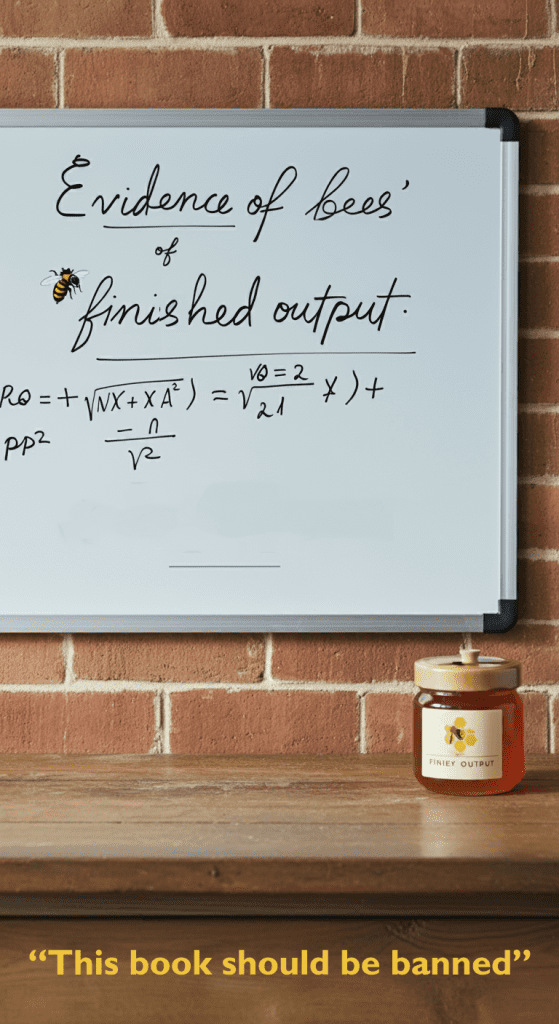 Evidence of bees'
of
finished output.
RQ = + √NX + XA²) = √Q = 2 / √21 X) +
PP² - n / √2
FINIEY OUTPUT
“This book should be banned”